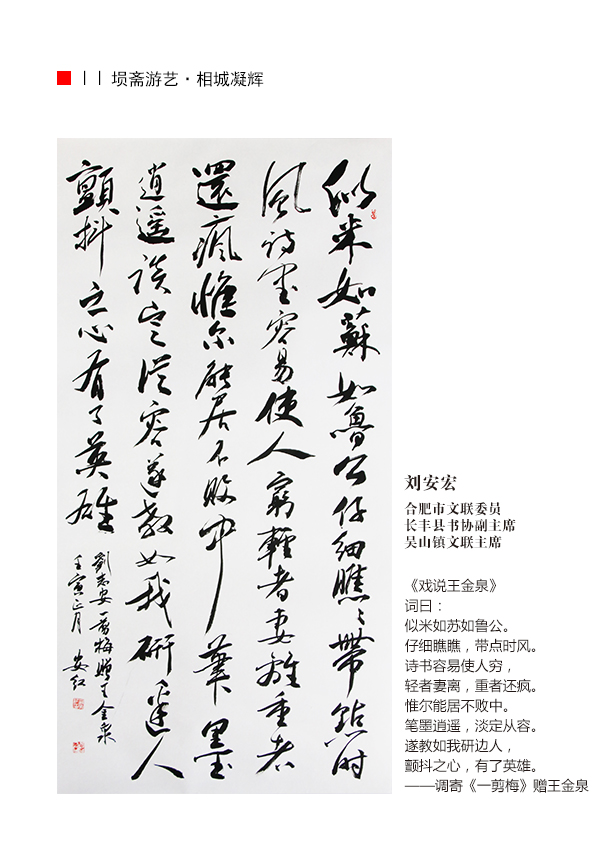 丨丨 埙斋游艺·相城凝辉
似米如蘇如魯公仔細瞧〻帶點时
風诗書容易使人窮輕者妻離重者
還瘋惟尔能居不败中筆墨
逍遥淡定從容遂教如我研邊人
顫抖之心有了英雄
劉志安一剪梅贈王金泉
壬寅正月 安红
刘安宏
合肥市文联委员
长丰县书协副主席
吴山镇文联主席
《戏说王金泉》
词曰：
似米如苏如鲁公。
仔细瞧瞧，带点时风。
诗书容易使人穷，
轻者妻离，重者还疯。
惟尔能居不败中。
笔墨逍遥，淡定从容。
遂教如我研边人，
颤抖之心，有了英雄。
——调寄《一剪梅》赠王金泉